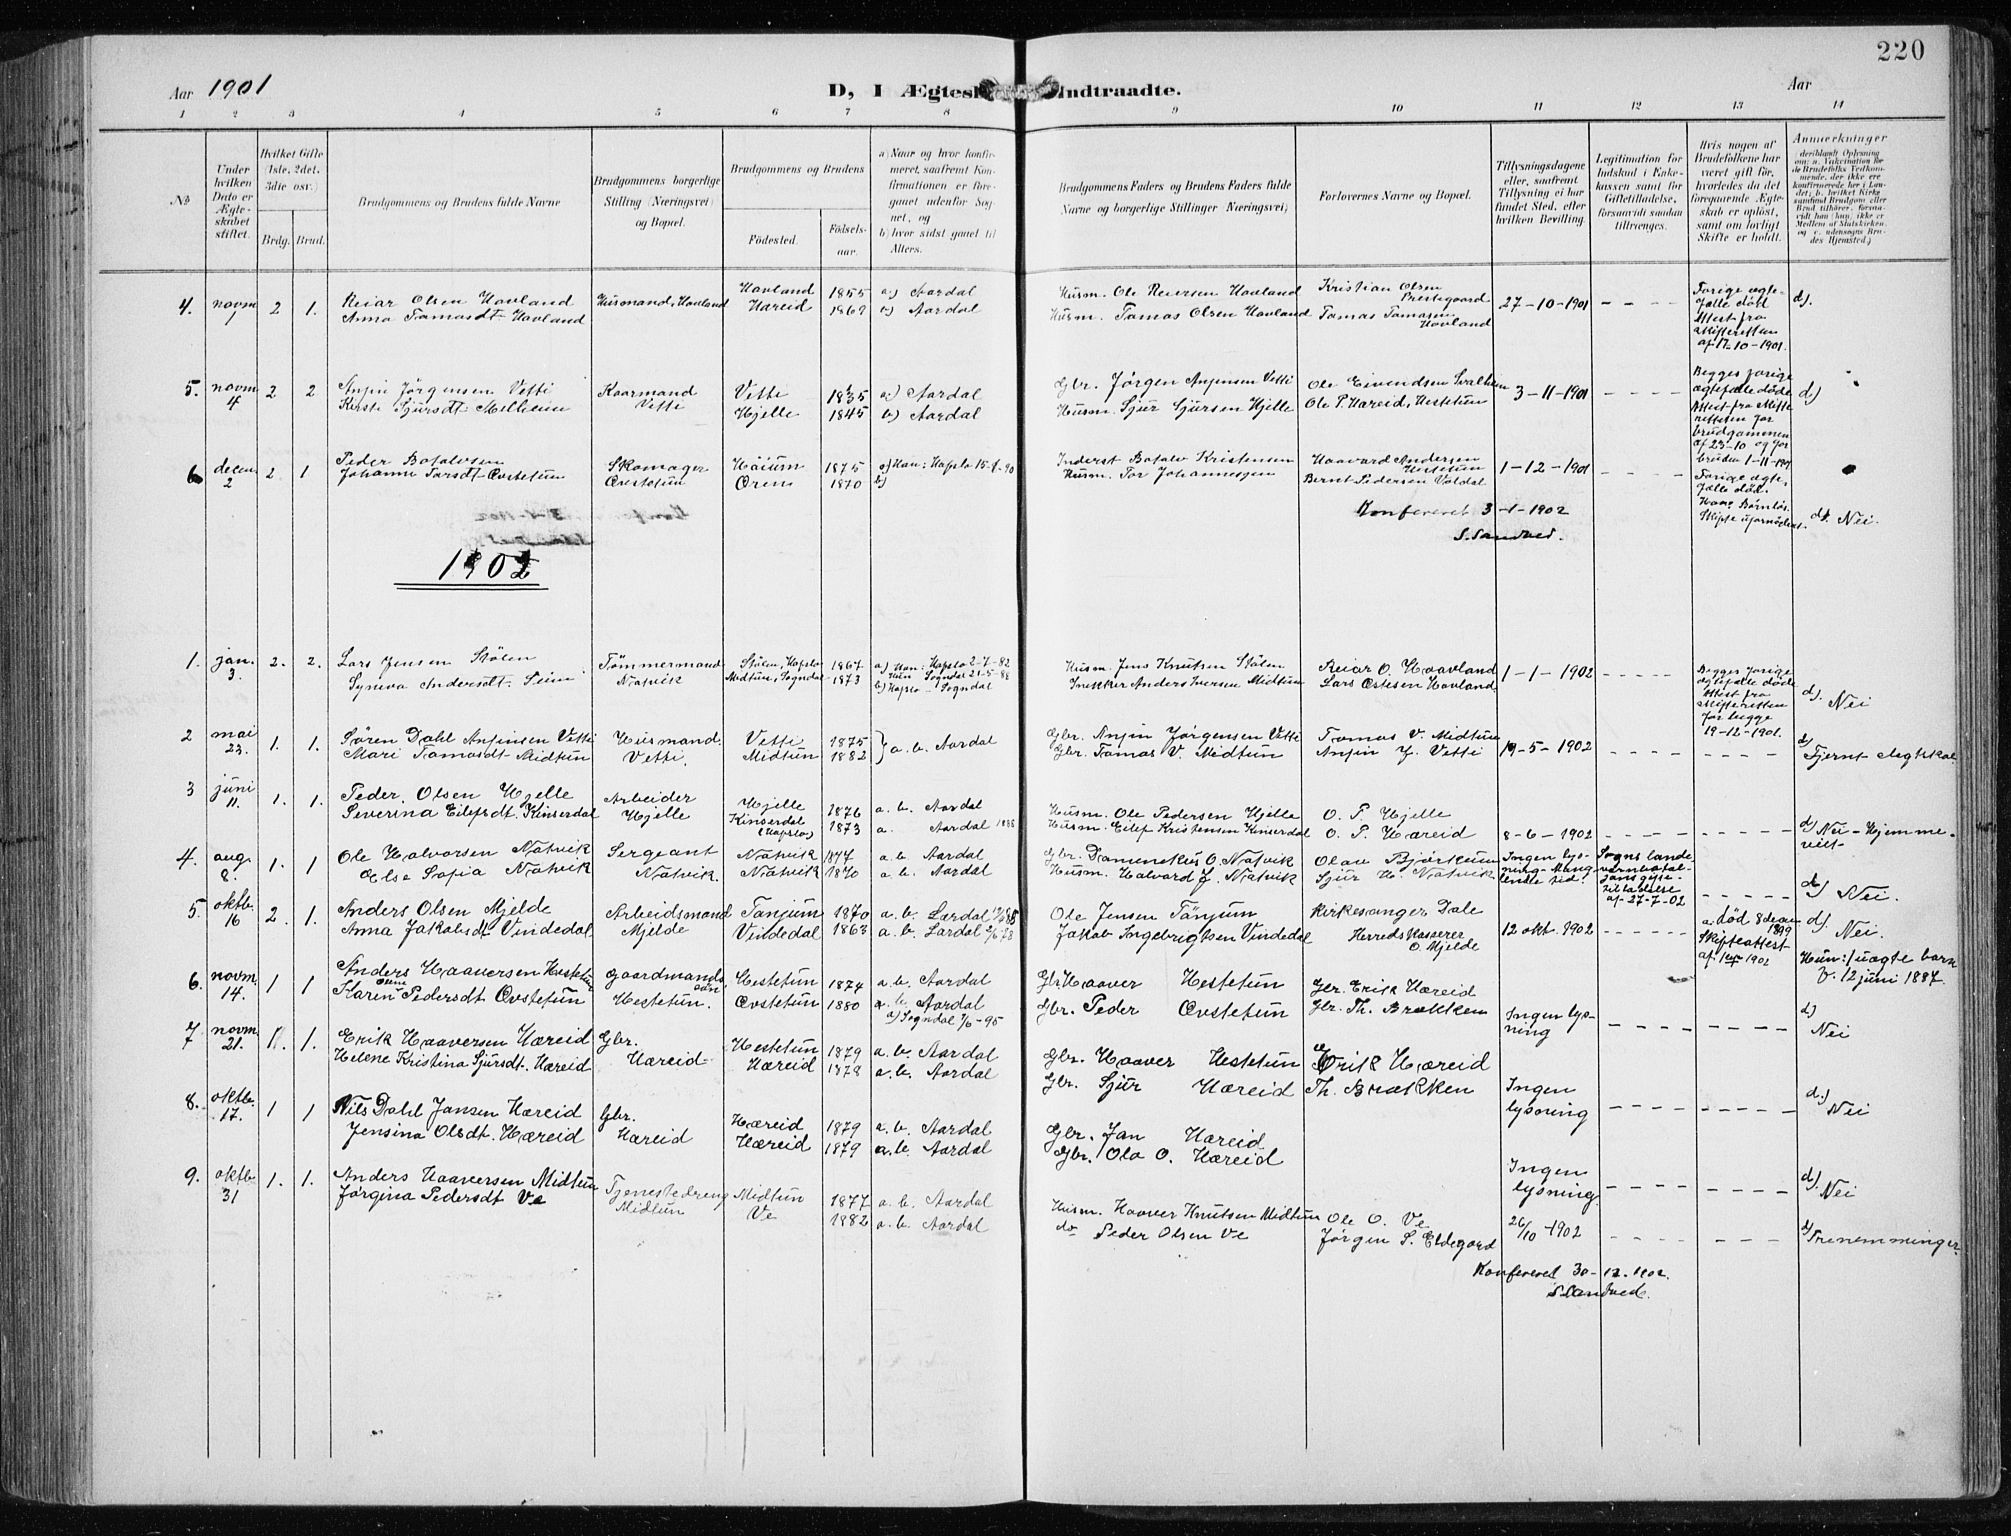 220
Aar 1901
D, I Ægtes
Indtraadte.
Aar
1 2 3 4 5 6 7 8 9 10 11 12 13 14
№
Under hvilken Dato er Ægteskabet stiftet.
Hvilket Gifte (1ste, 2det, 3die osv.)
Brdg. Brud.
Brudgommens og Brudens fulde Navne
Brudgommens borgerlige Stilling (Næringsvei) og Bopæl.
Brudgommens og Brudens
Födested.
Födselsaar.
a) Naar og hvor konfirmeret, saafremt Konfirmationen er foregaaet udenfor Sognet, og
b) hvor sidst gaaet til Alters.
Brudgommens Faders og Brudens Faders fulde Navne og borgerlige Stillinger (Næringsvei)
Forlovernes Navne og Bopæl.
Tillysningsdagene eller, saafremt Tillysning ei har fundet Sted, efter hvilken Bevilling.
Legitimation for Indskud i Enkekassen samt for Giftetilladelse, forsaavidt saadan tiltrænges.
Hvis nogen af Brudefolkene har været gift før, hvorledes da det foregaaende Ægteskab er opløst, samt om lovligt Skifte er holdt.
Anmerkninger
(deriblandt Oplysning om: a. Vakcination for de Brudefolks Vedkommende, der ikke ere konfirmerede her i Landet; b. hvilket Kirkesamfund Brudgom eller Brud tilhører, forsavidt han (hun) ikke er Medlem af Statskirken, og c. udensogns Brudes Hjemsted.)
4. novm 1 2 1. Reiar Olsen Hovland Husmand, Hovland Hovland 1855 a) Aardal Husm. Ole Reiersen Hovland Kristian Olsen Prestegaard 27-10-1901 - - - - Forige ægtefælle död Attest fra skifteretten af 17-10-1901. d).
Anna Tamasdt. Hovland Hareid 1869 b) Aardal Husm. Tamas Olsen Hovland Tamas Tamasen Hovland
5. novm 4 2 2 Anfin Jörgensen Vetti Kaarmand Vetti Vetti 1835 a) Aardal Gbr. Jörgen Anfinsen Vetti Ole Eivendsen Svalheim 3-11-1901 - - - - Begges forige ægtefælle döde Attest fra skifteretten for brudgommen af 23-10 og for bruden 1-11-1901 d)
Kirsti Sjursdt. Melheim Hjelle 1845 b) Aardal Husm. Sjur Sjursen Hjelle Ole P. Hæreid, Hestetun
6 decem 2 2. 1 Peder Botolvsen Skomager Höium 1875 a) Han: Hafslo 15-6-90 Inderst Botolv Kristensen Haavard Andersen Hestetun 1-12-1901 - - - - Forige ægtefælle död. Have Börnlös. Skifte ufornödent. d). Nei.
Johanne Torsdt. Øvstetun Øvstetun Øren 1870 b) Husm. Tor Johannesen Bernt Pedersen Voldal
Konfereret 3-1-1902
S. Sandved.
1902
1. jan. 3. 2. 2. Lars Jensen Stölen Tömmermand Stölen, Hafslo 1867 a) Han: Hafslo 2-7-82 Husm. Jens Knutsen Stölen Reiar O. Haavland 1-1-1902 - - - - - Begges forige ægtefælle döde Attest fra skifteretten for begge 19-12-1901. d). Nei
Synva Andersdt. Seim Natvik Midtun, Sogndal 1873 Hun Sogndal 21-5-88 b) Hafslo - Sogndal Snekker Anders Iversen Midtun Lars Østesen Hovland
2 mai 23. 1. 1. Sören Dahl Anfinsen Vetti Husmand. Vetti 1875 } a. b. Aardal Gbr. Anfin Jörgensen Vetti Tomas V. Midtun 19-5-1902 - - - - - - - - - d) Fjernt slegtskab
Mari Tamasdt. Midtun Vetti. Midtun 1882 Gbr. Tamas V. Midtun Anfin J. Vetti
3 juni 11. 1. 1. Peder Olsen Hjelle Arbeider Hjelle 1876 a. b. Aardal Husm. Ole Pedersen Hjelle O. P. Hjelle 8-6-1902 - - - - - - - - - d) Nei - Hjemmeviet
Severina Eilefsdt. Kinserdal Hjelle Kinserdal (Hafslo) 1873 a. Aardal 1888 Husm. Eilef Kristensen Kinserdal O. P. Hæreid
4. aug. 8. 1. 1 Ole Halvorsen Natvik Sergeant Natvik 1877 a. b. Aardal Gbr. Dominekus O. Natvik Olav Björkum Ingen lysning. Manglende tid. Sogns landevernbataljons giftetilladelse af 27-7-02 - - - - d) Nei.
Else Sofia Natvik Natvik. Natvik 1870 a. b. Aardal Husm. Halvard J. Natvik Sjur H. Natvik
5. oktb. 16 2. 1. Anders Olsen Mjelde Arbeidsmand Tønjum 1870 a. b. Lærdal Ole Jensen Tönjum Kirkesanger Dale 12 okt. 1902 - - - - - a. död 8 decem 1899 Skifteattest af 1902 d) Nei.
Anna Jakobsdt Vindedal Mjelde Vindedal 1863 a. b. Lærdal Jakob Ingebrigtsen Vindedal Herredskasserer O. Mjelde
6. novm. 14. 1 1 Anders Haaversen Hestetun gaardmandssön Hestetun 1874 a. b. Aardal Gbr Haaver Hestetun Gbr. Erik Hæreid Ingen lysning - - - - - - - - Hun: 1 uægte barn f. 12 juni 1887. d) Nei
Karen Pedersdt Øvstetun Hestetun. Øvstetun 1880 a. b. Aardal a) Sogndal 7/6-95 Gbr. Peder Øvstetun Gbr. Th. Brækken
7 novm. 21. 1. 1. Erik Haaversen Hæreid Gbr. Hestetun 1879 a. b. Aardal Gbr. Haaver Hestetun Erik Hæreid Ingen lysning - - - - - - - - d.) Nei
Helene Kristina Sjursdt. Hæreid Hæreid Hæreid 1878 a. b. Aardal Gbr. Sjur Hæreid Th. Brækken
8. oktb. 17. 1 1 Nils Dahl Jansen Hæreid Gbr. Hæreid 1879 a. b. Aardal Gbr. Jan Hæreid Ingen lysning. - - - - - - - - d). Nei
Jensina Olsdt. Hæreid Hæreid Hæreid 1879 a. b. Aardal Gbr. Ola O. Hæreid
9. oktb. 31 1. 1. Anders Haaversen Midtun Tjenestedreng Midtun 1877 a. b. Aardal Husm. Haaver Knutsen Midtun Ole O. Ve 26/10-1902 - - - - - - - - d) Trenemminger
Jörgina Pedersdt Ve Midtun Ve 1882 a. b. Aardal do Peder Olsen Ve Jörgen S. Eldegard
Konfereret 30-12-1902.
S. Sandved.